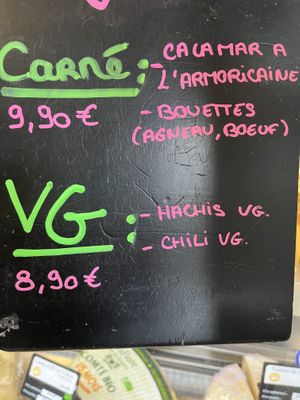 Carné: - CALAMAR A
L'ARMORICAINE
9,90 €
- BOUETTES
(AGNEAU, BOEUF)
VG: - HACHIS VG.
- CHILI VG.
8,90 €
COMTE BIO